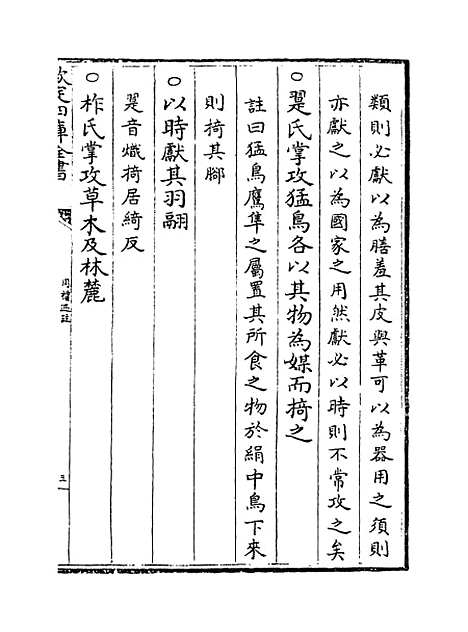 類則必獻以為膳羞其皮與革可以為器用之須則
亦獻之以為國家之用然獻必以時則不常攻之矣
○翨氏掌攻猛鳥各以其物為媒而掎之
註曰猛鳥鷹隼之屬置其所食之物於絹中鳥下來
則掎其腳
○以時獻其羽翮
翨音熾掎居綺反
○柞氏掌攻草木及林麓
欽定四庫全書
周禮述註
三